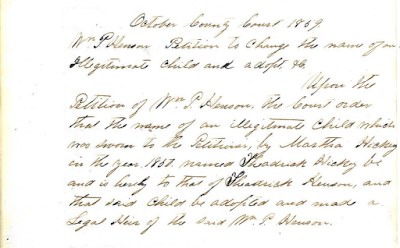 October County Court 1859.
Wm P Henson Petition to Change the name of an
Illegitimate Child and adopt, &c
Upon the
Petition of Wm P. Henson, the Court order
that the name of an illegitimate Child which
was sworn to the Petitioner, by Martha Hickey
in the year 1857. named Thadrick Hickey be
and is hereby to that of Thadrick Henson, and
that said Child be adopted and made a
Legal Heir of the said Wm P. Henson.